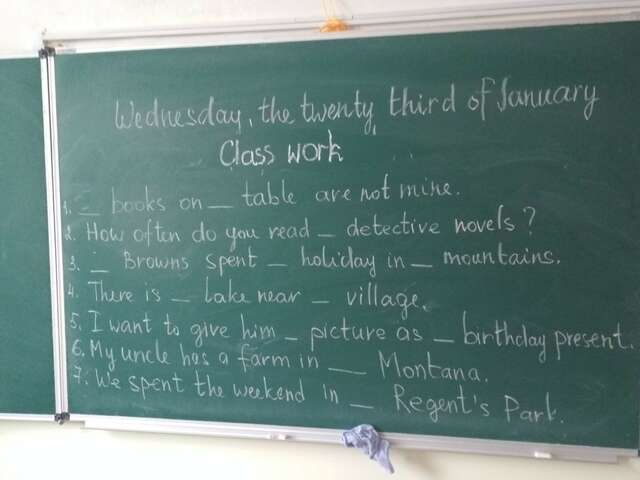 Wednesday, the twenty third of January
Class work
1. _ books on _ table are not mine.
2. How often do you read _ detective novels?
3. _ Browns spent _ holiday in _ mountains.
4. There is _ lake near _ village.
5. I want to give him _ picture as _ birthday present.
6. My uncle has a farm in __ Montana.
7. We spent the weekend in _ Regent's Park.